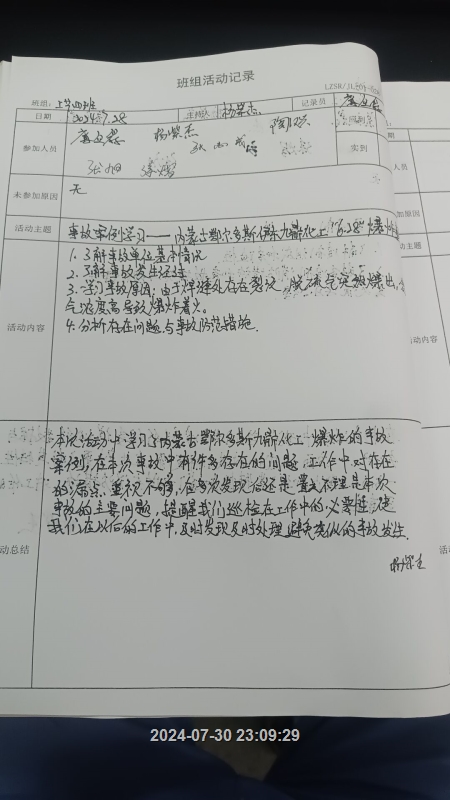 班组活动记录
LZSR/JL
班组:上岸四班
日期 2024.7.28 主持人 杨崇杰 记录员
参加人员 杨崇杰 实到
未参加原因 无
活动主题 事故案例学习——内蒙古鄂尔多斯伊东九鼎化工"6.28"爆炸
活动内容
1. 了解事故单位基本情况
2. 了解事故发生经过
3. 学习事故原因:由于焊缝处存在裂纹,脱硫气突然爆出,
气浓度高导致爆炸着火。
4. 分析存在问题与事故防范措施.
动总结
本次活动中学习了内蒙古鄂尔多斯九鼎化工爆炸的事故
案例,在本次事故中有许多存在的问题,工作中对存在
的漏点重视不够,在多次发现后还是置之不理是本次
事故的主要问题,提醒我们巡检在工作中的必要性,使
我们在以后的工作中,及时发现及时处理避免类似的事故发生.
2024-07-30 23:09:29